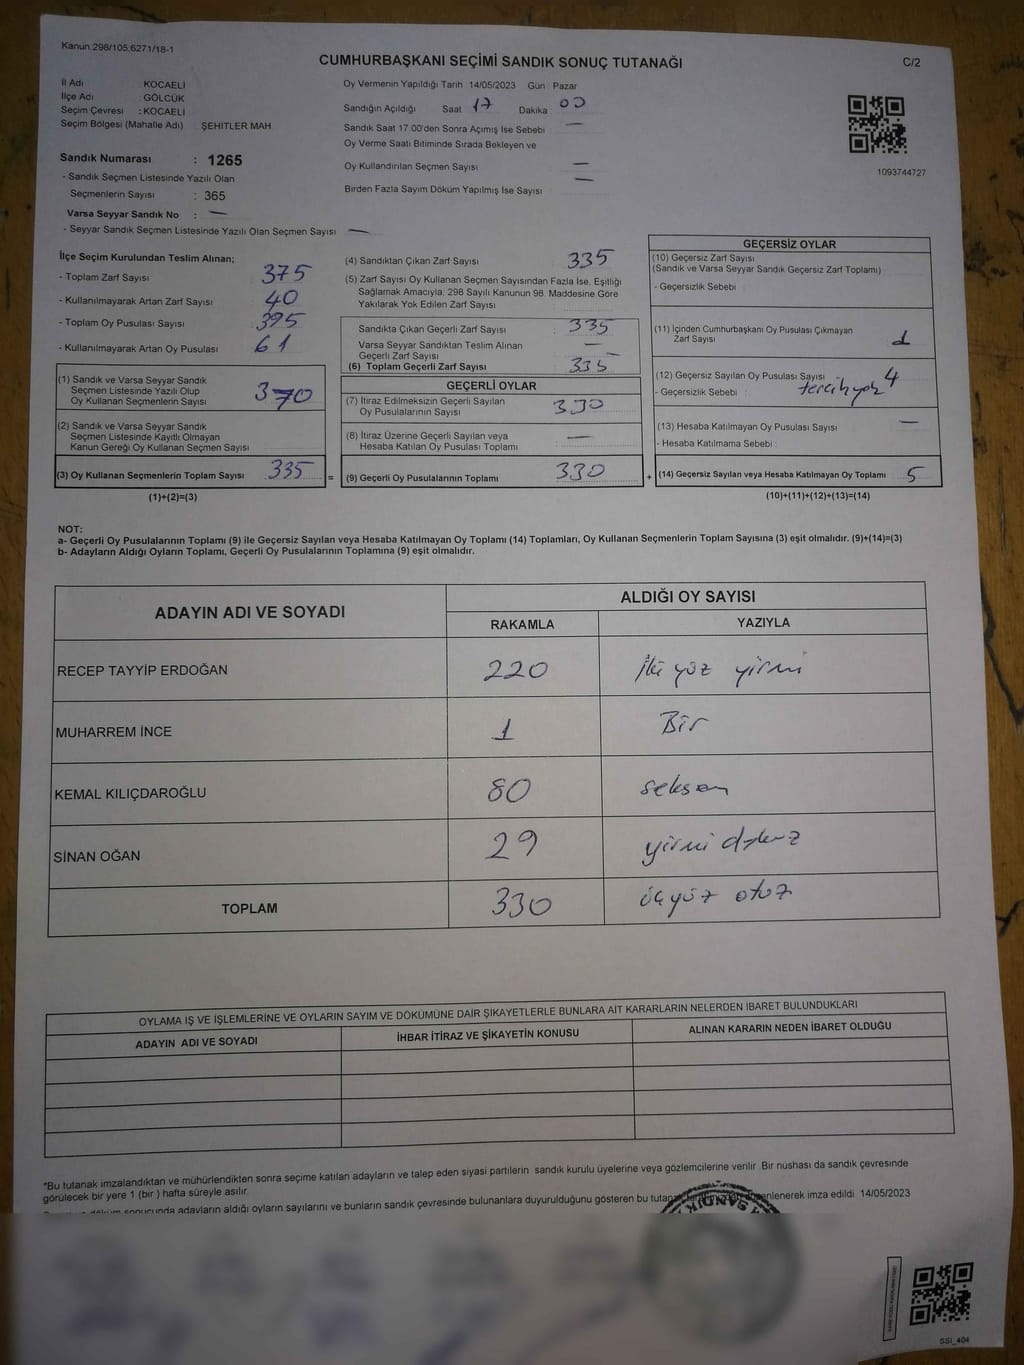 Kanun 298/105.6271/18-1
CUMHURBAŞKANI SEÇİMİ SANDIK SONUÇ TUTANAĞI
C/2
İl Adı KOCAELİ
İlçe Adı GÖLCÜK
Seçim Çevresi : KOCAELİ
Seçim Bölgesi (Mahalle Adı) ŞEHİTLER MAH
Sandık Numarası : 1265
- Sandık Seçmen Listesinde Yazılı Olan
Seçmenlerin Sayısı : 365
Varsa Seyyar Sandık No : —
- Seyyar Sandık Seçmen Listesinde Yazılı Olan Seçmen Sayısı —
Oy Vermenin Yapıldığı Tarih 14/05/2023 Gün : Pazar
Sandığın Açıldığı Saat 17 Dakika 00
Sandık Saat 17.00'den Sonra Açımış İse Sebebi —
Oy Verme Saati Bitiminde Sırada Bekleyen ve
Oy Kullandırılan Seçmen Sayısı —
Birden Fazla Sayım Döküm Yapılmış İse Sayısı —
1093744727
İlçe Seçim Kurulundan Teslim Alınan;
- Toplam Zarf Sayısı 375
- Kullanılmayarak Artan Zarf Sayısı 40
- Toplam Oy Pusulası Sayısı 395
- Kullanılmayarak Artan Oy Pusulası 61
(1) Sandık ve Varsa Seyyar Sandık
Seçmen Listesinde Yazılı Olup
Oy Kullanan Seçmenlerin Sayısı 370
(2) Sandık ve Varsa Seyyar Sandık
Seçmen Listesinde Kayıtlı Olmayan
Kanun Gereği Oy Kullanan Seçmen Sayısı
(3) Oy Kullanan Seçmenlerin Toplam Sayısı 335 =
(1)+(2)=(3)
(4) Sandıktan Çıkan Zarf Sayısı 335
(5) Zarf Sayısı Oy Kullanan Seçmen Sayısından Fazla İse, Eşitliği
Sağlamak Amacıyla, 298 Sayılı Kanunun 98. Maddesine Göre
Yakılarak Yok Edilen Zarf Sayısı
Sandıkta Çıkan Geçerli Zarf Sayısı : 335
Varsa Seyyar Sandıktan Teslim Alınan
Geçerli Zarf Sayısı : —
(6) Toplam Geçerli Zarf Sayısı : 335
GEÇERLİ OYLAR
(7) İtiraz Edilmeksizin Geçerli Sayılan
Oy Pusulalarının Sayısı : 330
(8) İtiraz Üzerine Geçerli Sayılan veya
Hesaba Katılan Oy Pusulası Toplamı : —
(9) Geçerli Oy Pusulalarının Toplamı : 330 +
GEÇERSİZ OYLAR
(10) Geçersiz Zarf Sayısı
(Sandık ve Varsa Seyyar Sandık Geçersiz Zarf Toplamı)
- Geçersizlik Sebebi
(11) İçinden Cumhurbaşkanı Oy Pusulası Çıkmayan
Zarf Sayısı : 1
(12) Geçersiz Sayılan Oy Pusulası Sayısı : 4
- Geçersizlik Sebebi : tercih yok
(13) Hesaba Katılmayan Oy Pusulası Sayısı : —
- Hesaba Katılmama Sebebi :
(14) Geçersiz Sayılan veya Hesaba Katılmayan Oy Toplamı 5
(10)+(11)+(12)+(13)=(14)
NOT:
a- Geçerli Oy Pusulalarının Toplamı (9) ile Geçersiz Sayılan veya Hesaba Katılmayan Oy Toplamı (14) Toplamları, Oy Kullanan Seçmenlerin Toplam Sayısına (3) eşit olmalıdır. (9)+(14)=(3)
b- Adayların Aldığı Oyların Toplamı, Geçerli Oy Pusulalarının Toplamına (9) eşit olmalıdır.
ADAYIN ADI VE SOYADI ALDIĞI OY SAYISI
RAKAMLA YAZIYLA
RECEP TAYYİP ERDOĞAN 220 iki yüz yirmi
MUHARREM İNCE 1 Bir
KEMAL KILIÇDAROĞLU 80 seksen
SİNAN OĞAN 29 yirmi dokuz
TOPLAM 330 üçyüz otuz
OYLAMA İŞ VE İŞLEMLERİNE VE OYLARIN SAYIM VE DÖKÜMÜNE DAİR ŞİKAYETLERLE BUNLARA AİT KARARLARIN NELERDEN İBARET BULUNDUKLARI
ADAYIN ADI VE SOYADI İHBAR İTİRAZ VE ŞİKAYETİN KONUSU ALINAN KARARIN NEDEN İBARET OLDUĞU
*Bu tutanak imzalandıktan ve mühürlendikten sonra seçime katılan adayların ve talep eden siyasi partilerin sandık kurulu üyelerine veya gözlemcilerine verilir. Bir nüshası da sandık çevresinde
görülecek bir yere 1 (bir) hafta süreyle asılır.
döküm sonucunda adayların aldığı oyların sayılarını ve bunların sandık çevresinde bulunanlara duyurulduğunu gösteren bu tutanak imza edildi. 14/05/2023
SANDIK
SSI_404